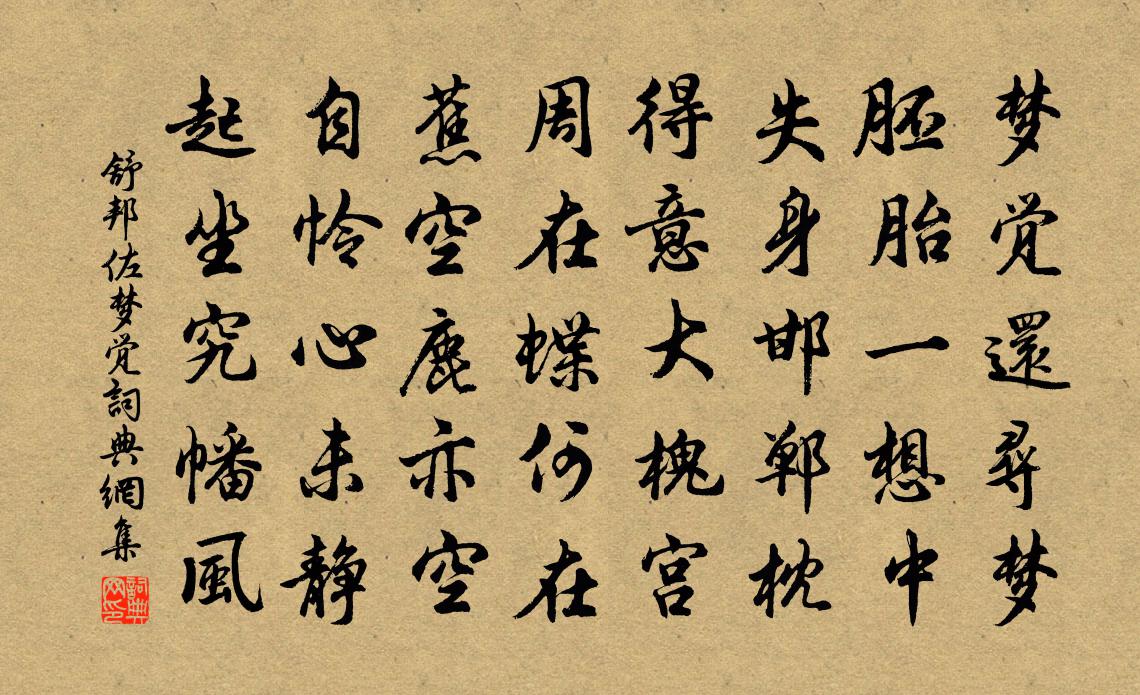 梦觉還尋梦
胚胎一想中
失身邯郸枕
得意大槐宫
周在蝶何在
蕉空鹿亦空
自怜心未静
起坐究幡風
舒邦佐梦觉詞典網集
詞典网印